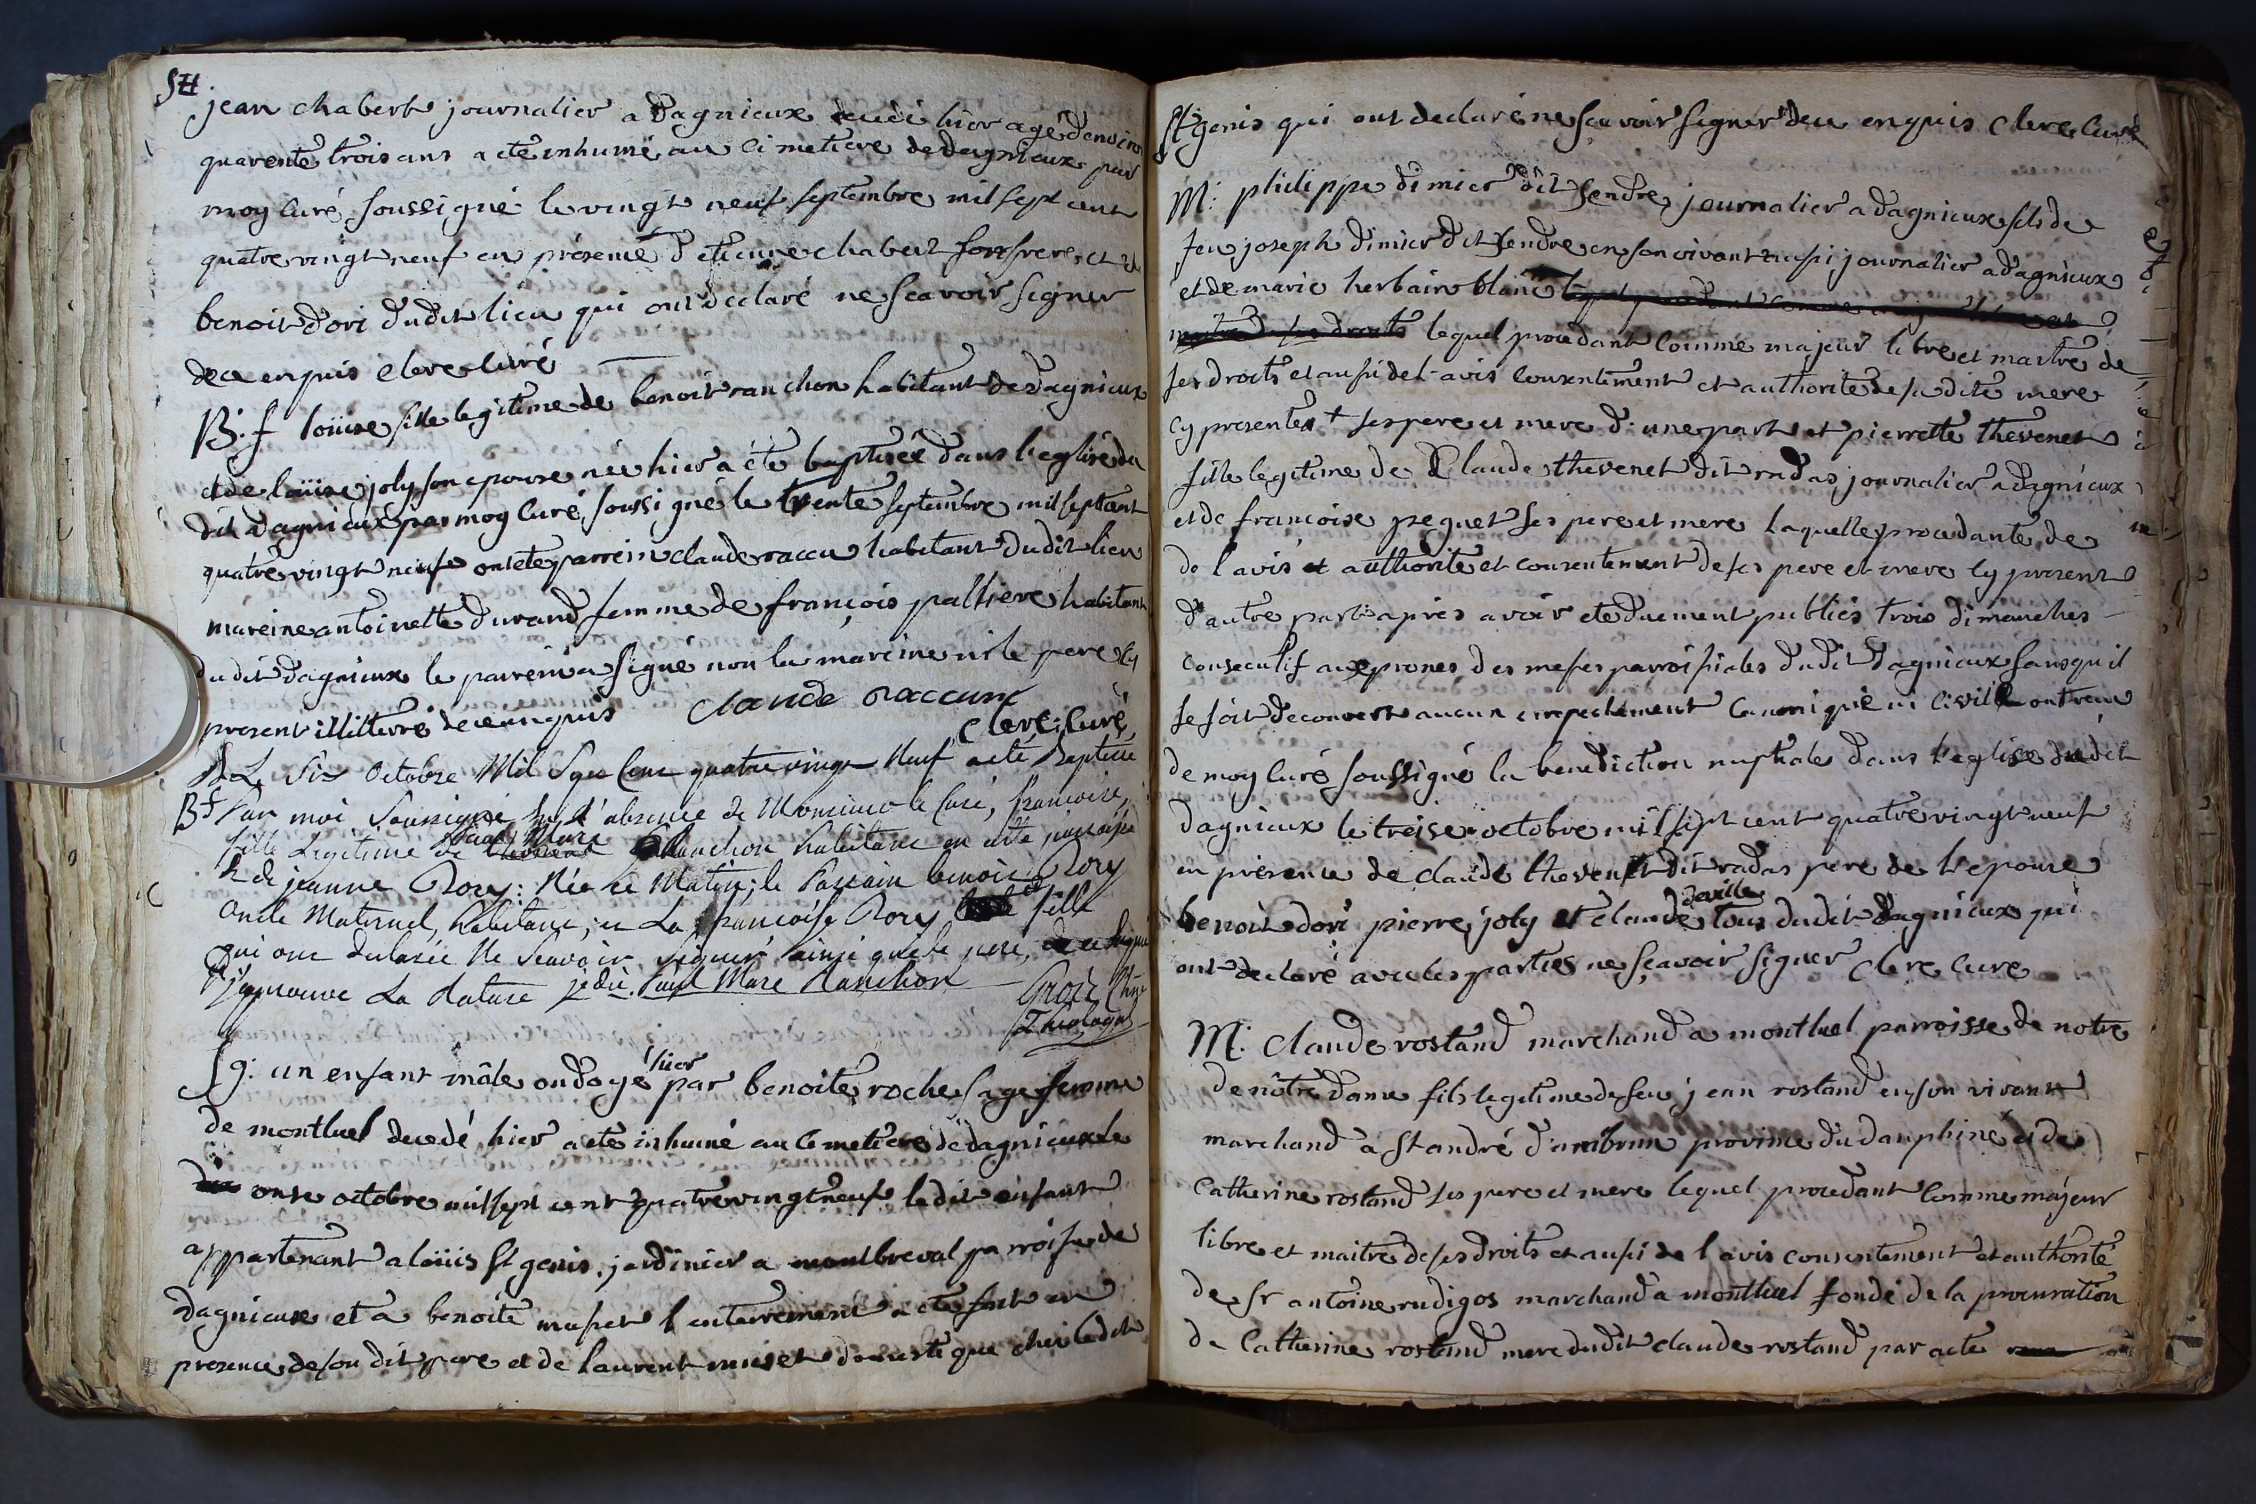 SH.
jean chabert journalier a Dagnieux decedé hier agé d'environ
quarente trois ans a eté inhumé au cimetiere de dagnieux par
moy curé soussigné le vingt neuf septembre mil sept cent
quatre vingt neuf en présence d'etienne chabert son frere et de
benoit dori dudit lieu qui ont declaré ne scavoir signer
de ce enquis clere curé
B. f loüise fille legitime de benoit ranchon habitant de Dagnieux
et de loüise joly son epouse née hier a été baptisée dans l'eglise du
dit Dagnieux par moy curé soussigné le trente septembre mil sept cent
quatre vingt neuf ont eté parrein claude raccu habitant dudit lieu
mareine antoinette durand femme de françois palliere habitant
dudit dagnieux le parrein a signé non la mareine ni le pere cy
present illitterés de ce enquis claude raccurt
clere curé
Le Six Octobre Mil Sept Cent quatre vingt Neuf a eté Baptisée
Bf Par moi Soussigné en l'absence de Monsieur le Curé, francoise,
fille Legitime de paul Marc Ranchon habitant en cette paroisse
& de jeanne Dory: Née ce Matin; le Parrain benoit Dory
Oncle Maternel, habitant, et La francoise Dory fille
qui ont declarée Ne Scavoir Signer ainsi que le pere, de ce Requis
j'approuve La rature je dis Paul Marc Ranchon
Groz Ptre
Theologal
Sg: un enfant mâle ondoyé hier par benoite roche sage femme
de montluel decedé hier a eté inhumé au Cimetiere de dagnieux le
onze octobre mil sept cent quatre vingt neuf le dit enfant
appartenant a loüis St genis jardinier a montbreval parroisse de
dagnieux et a benoite muset l'enterrement a eté fait en
presence de son dit pere et de laurent muset domestique chez ledit
St genis qui ont declaré ne scavoir signer de ce enquis clere curé
M: philippe dimier dit Jendre journalier a dagnieux fils de
feu joseph dimier dit Jendre en son vivant aussi journalier a dagnieux
et de marie herbain blanc
lequel procedant comme majeur libre et maitre de
ses droits et aussi de l'avis consentement et authorité de sa dite mere
cy presente + ses pere et mere d'une part et pierrette thevenet
fille legitime de Claude thevenet dit radas journalier a dagnieux
et de francoise peguet ses pere et mere laquelle procedante de
de l'avis et authorité et consentement de ses pere et mere cy present
d'autre part apres avoir eté duement publiés trois dimanches
consecutif aux prones des messes parroissiales dudit dagnieux sans qu'il
se soit decouvert aucun empechement canonique ni civille ont reçu
de moy curé soussigné la benediction nuptiale dans l'eglise dudit
dagnieux le treise octobre mil sept cent quatre vingt neuf
en présence de claude thevenet dit radas pere de l'epouse
benoit dori pierre joly et claude deville tous dudit dagnieux qui
ont declaré avec les parties ne scavoir signer clere cure
M: Claude rostand marchand a montluel parroisse de notre
de nôtre dame fils legitime de feu jean rostand en son vivant
marchand a St andré d'ambrun province du dauphiné et de
Catherine rostand ses pere et mere lequel procedant comme majeur
libre et maitre de ses droits et aussi de l'avis consentement et authorité
de Sr antoine rudigos marchand a montluel fondé de la procuration
de Catherine rostand mere dudit claude rostand par acte